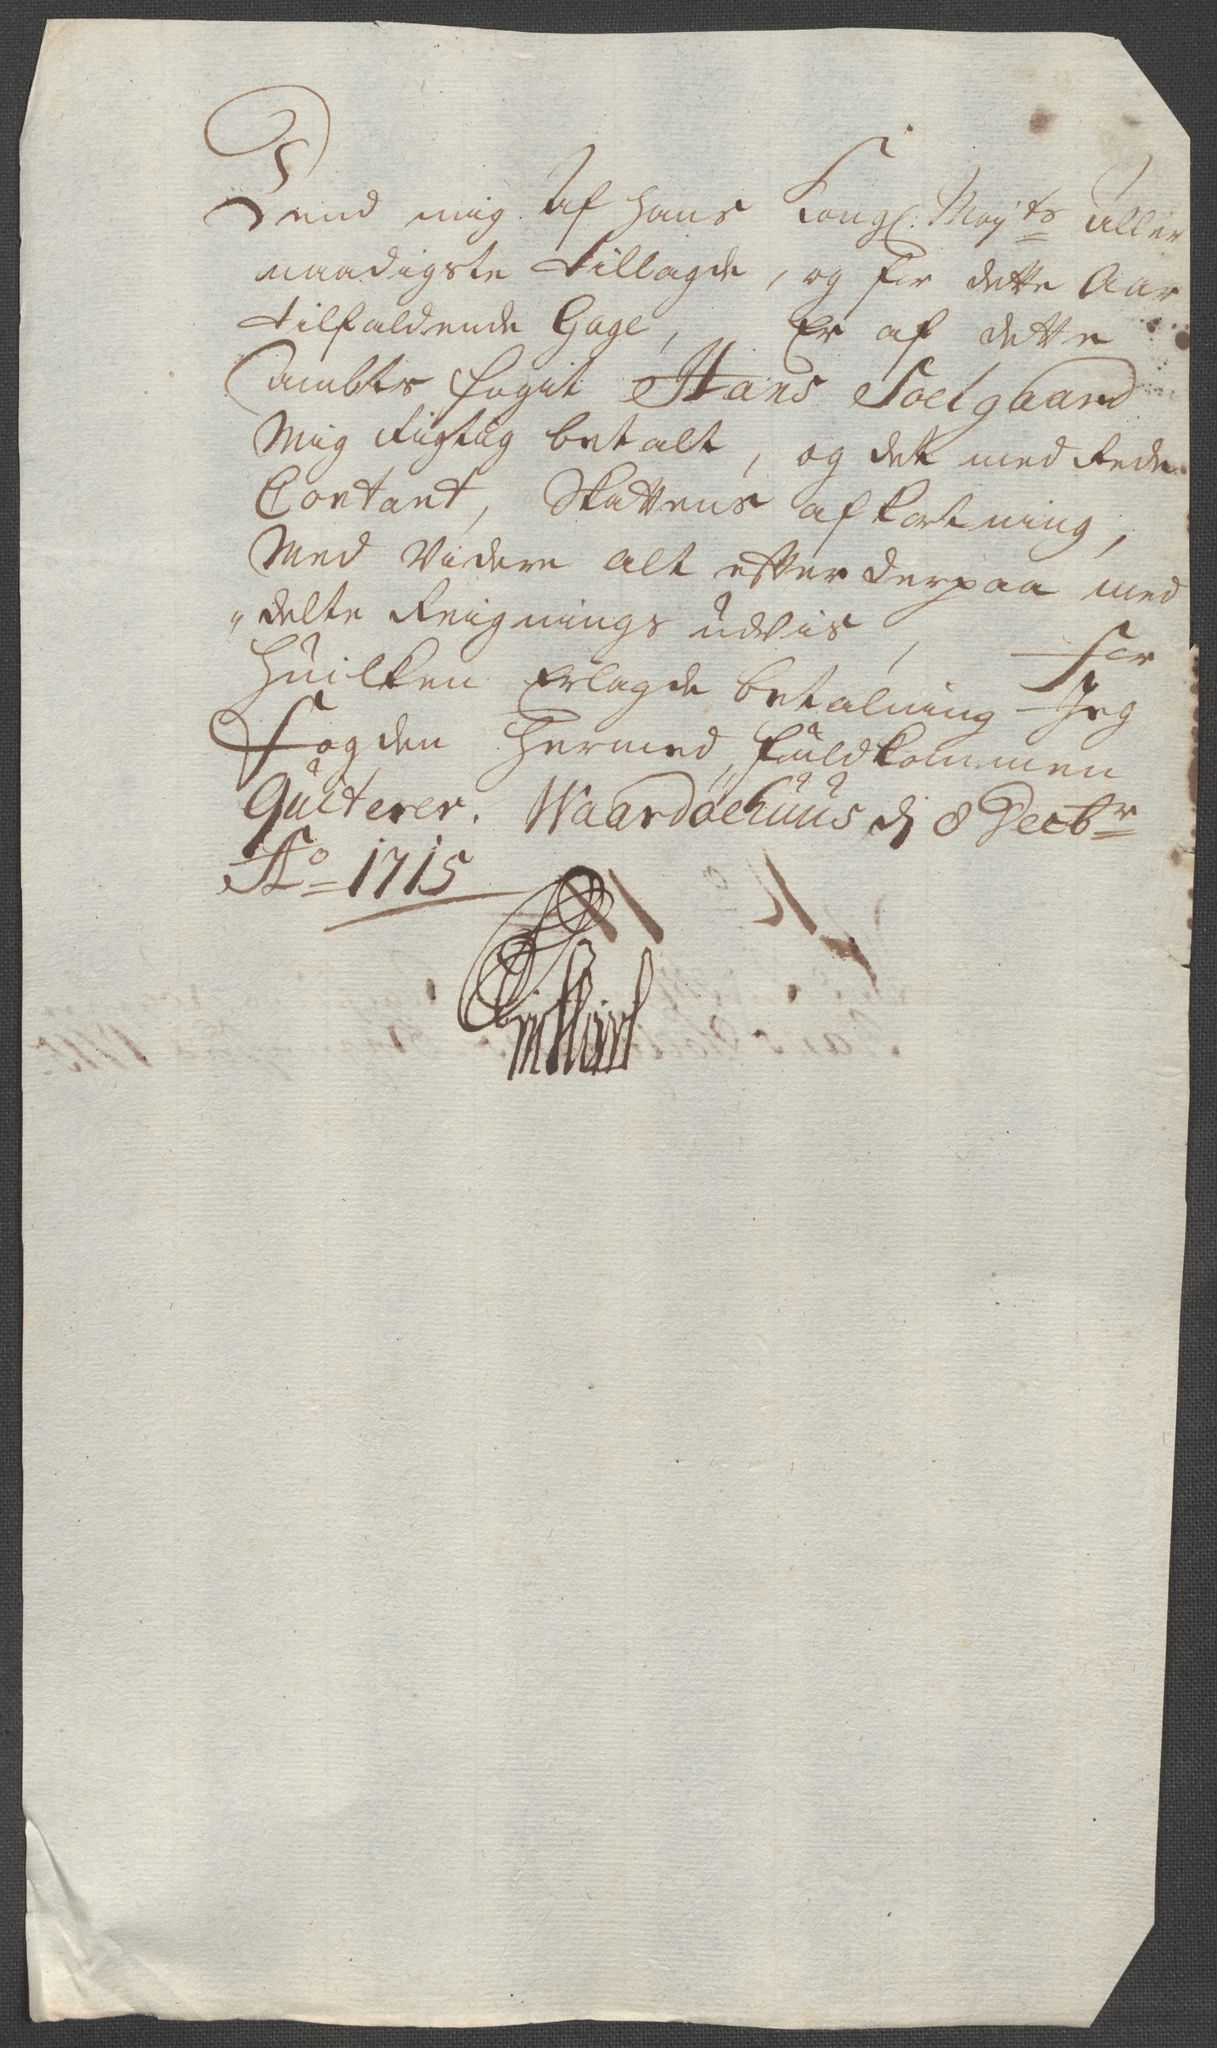 Dend mig af hans Kongl: Mayts aller
naadigste tillagde, og for dette Aar
tilfaldende Gage, Er af dette
ambts fogit Hans Soelgaard
Mig Rigtig betalt, og det med Rede
Contant, Skattens afkortning,
Med Videre alt effter derpaa med
"delte Reignings udvis, For
Huilken Erlagde betalning Jeg
Fogden Hermed fuldkommen
Quiterer. Waardøehuus dj 8 Decbr
Ao 1715